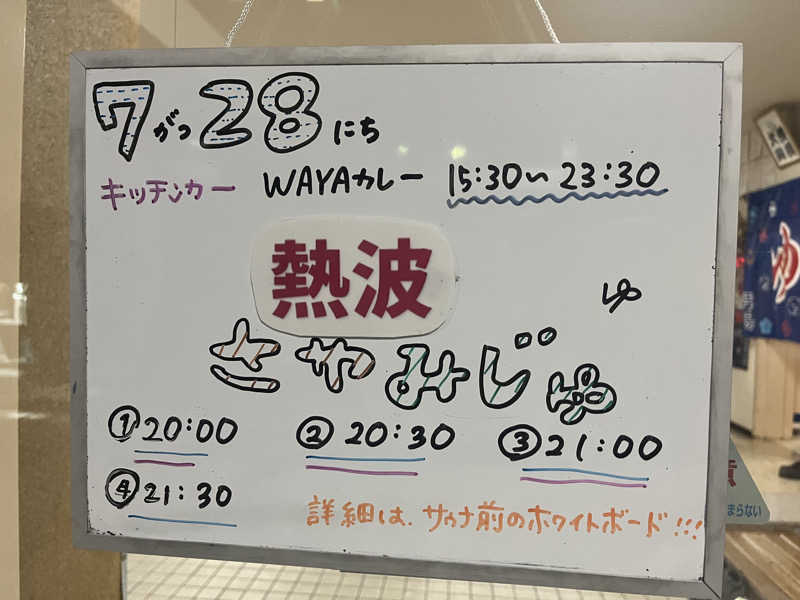 7がつ28にち
キッチンカー WAYAカレー 15:30〜23:30
熱波
ゆ
ささみじゅ
①20:00 ②20:30 ③21:00
④21:30
詳細は、サウナ前のホワイトボード!!!
ゆ
まらない